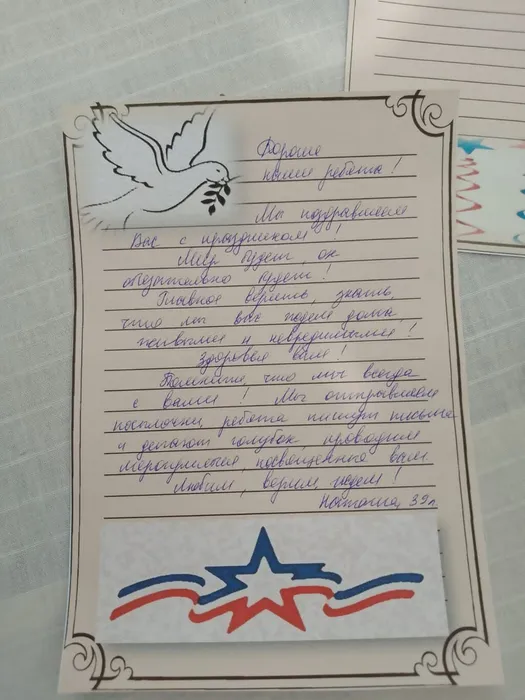 Дорогие
наши ребята!
Мы поздравляем
Вас с праздником!
Мир будет, он
обязательно будет!
Главное верить, знать,
что мы вас ждём дома,
живыми и невредимыми!
Здоровья вам!
Помните, что мы всегда
с вами! Мы отправляем
посылочки, ребята пишут письма
и делают голубок, проводим
мероприятия, посвящённые вам
Любим, верим, ждём!
Наташа, 39л.